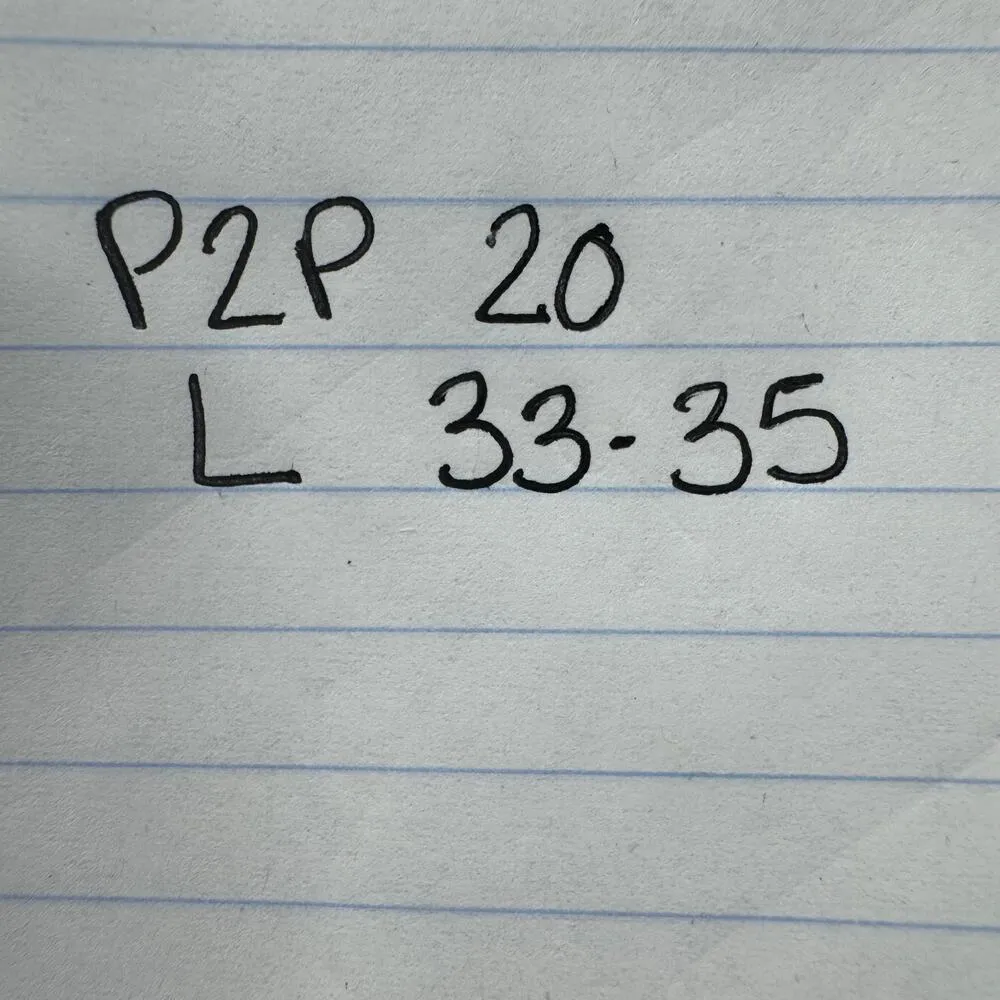 P2P 20
L 33-35